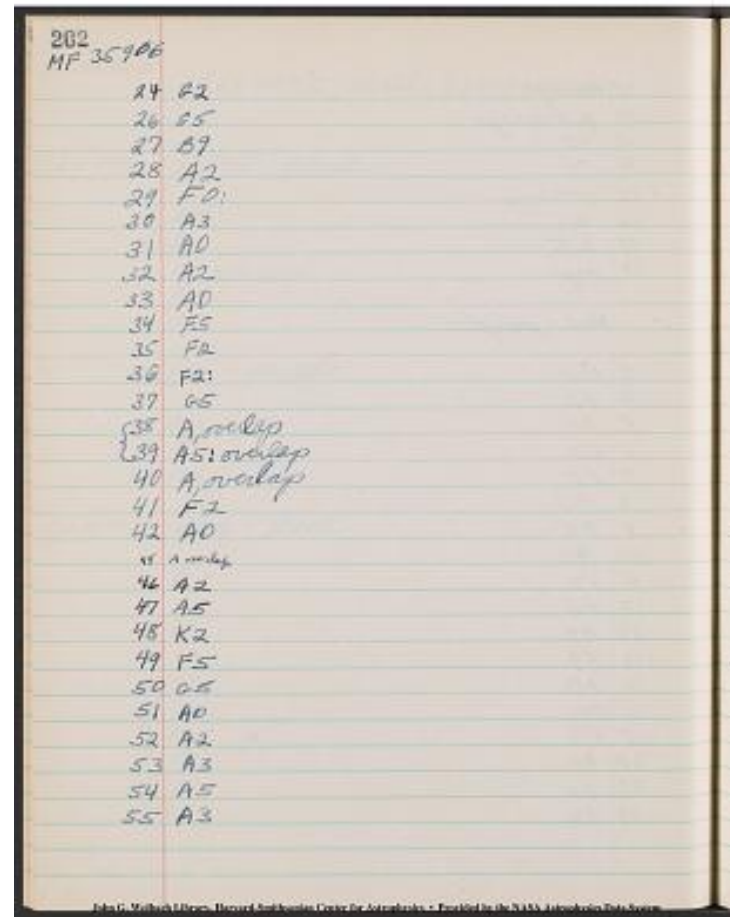 202
MF 35906
24 G2
26 G5
27 B9
28 A2
29 F0:
30 A3
31 A0
32 A2
33 A0
34 F5
35 F2
36 F2:
37 G5
38 A, overlap
39 A5: overlap
40 A, overlap
41 F2
42 A0
45 A overlap
46 A2
47 A5
48 K2
49 F5
50 G5
51 A0
52 A2
53 A3
54 A5
55 A3
John G. Wolbach Library, Harvard-Smithsonian Center for Astrophysics • Provided by the NASA Astrophysics Data System